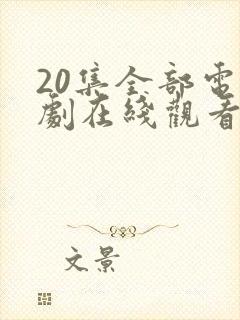 20集全部電
劇在綫觀看
文景